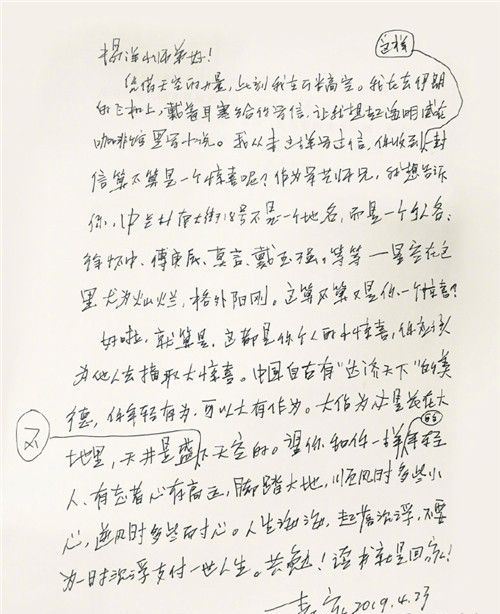 这样
杨洋小师弟好!
凭借天空的力量，此刻我在万米高空。我在去伊朗
的飞机上，戴着耳塞给你写信，让我想起海明威在
咖啡馆里写小说。我从来没这样写过信，你收到一封
信算不算是一个惊喜呢？作为军艺师兄，我想告诉
你，中关村南大街18号不是一个地名，而是一个人名：
徐怀中、傅庚辰、莫言、戴玉强。等等——星空在这
里尤为灿烂，格外阳刚。这算不算又是你一个惊喜？
好啦，就算是，这都是你个人的小惊喜，你应该
为他人去摘取大惊喜。中国自古有“达济天下”的美
德，你年轻有为，可以大有作为。大作为必是长在大
不
的
地里，天井是盛下天空的。望你和你一样年轻
人，有志者心存高远，脚踏大地，顺风时多些小
心，逆风时多些耐心。人生海海，起落沉浮，不要
为一时沉浮支付一世人生。共勉！读书就是回家！
麦家 2019.4.23